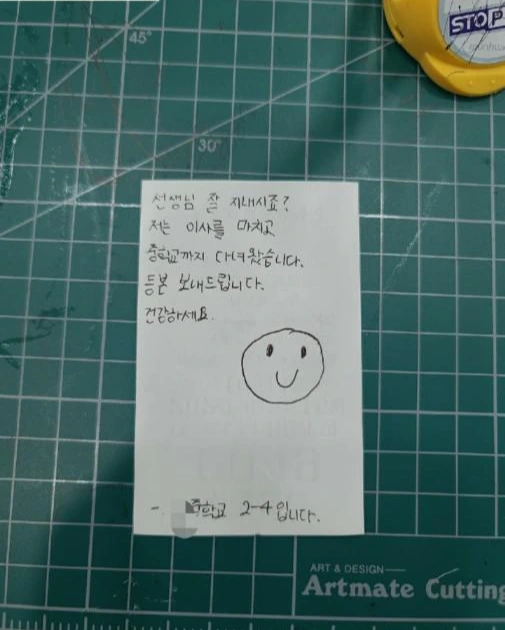 STOP
45°
30°
선생님 잘 지내시죠?
저는 이사를 마치고
중학교까지 다녀왔습니다.
등본 보내드립니다.
건강하세요.
- 중학교 2-4입니다.
ART & DESIGN
Artmate Cutting